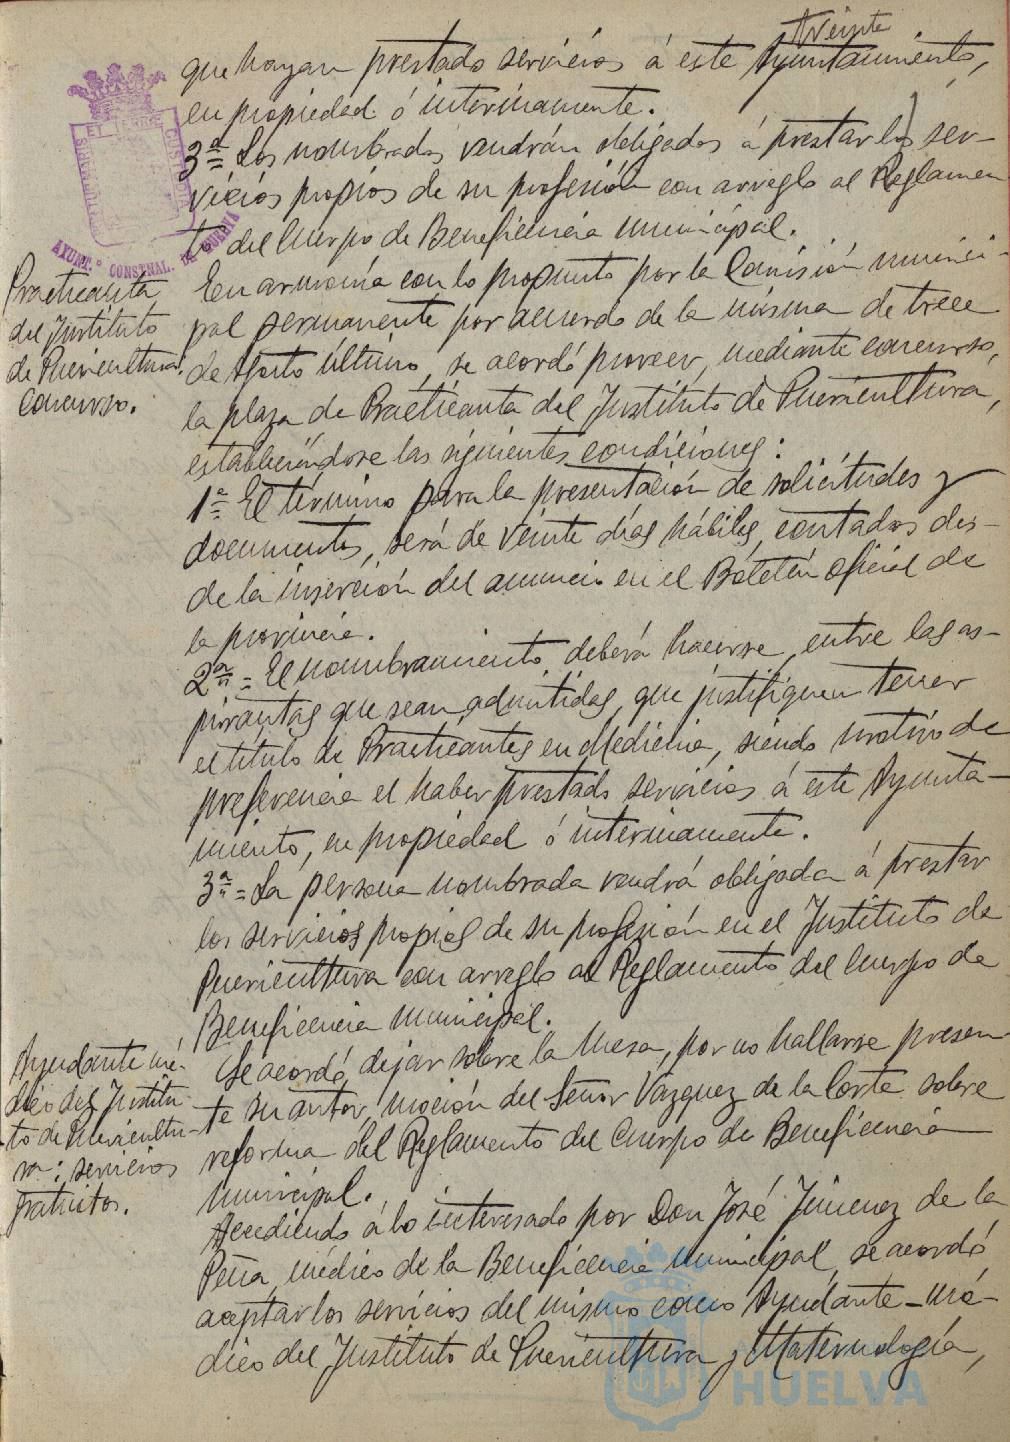 Treinta
que hayan prestado servicios á este Ayuntamiento,
en propiedad ó interinamente.
3ª = Los nombrados vendrán obligados á prestar los ser-
vicios propios de su profesión con arreglo al Reglamen
to del Cuerpo de Beneficencia municipal.
AYUNT.º CONSTNAL. DE HUELVA
Practicanta
del Instituto
de Puericultura:
concurso.
En armonía con lo propuesto por la Comisión munici-
pal permanente por acuerdo de la misma de trece
de Agosto último, se acordó proveer, mediante concurso,
la plaza de Practicanta del Instituto de Puericultura,
estableciéndose las siguientes condiciones:
1ª = El término para la presentación de solicitudes y
documentos, será de veinte días hábiles, contados des-
de la inserción del anuncio en el Boletín oficial de
la provincia.
2ª = El nombramiento deberá hacerse, entre las as-
pirantas que sean admitidas, que justifiquen tener
el título de Practicantes en Medicina, siendo motivo de
preferencia el haber prestado servicios á este Ayunta-
miento, en propiedad ó interinamente.
3ª = La persona nombrada vendrá obligada á prestar
los servicios propios de su profesión en el Instituto de
Puericultura con arreglo al Reglamento del Cuerpo de
Beneficencia municipal.
Se acordó dejar sobre la Mesa, por no hallarse presen-
te su autor, moción del Señor Vázquez de la Corte sobre
reforma del Reglamento del Cuerpo de Beneficencia
municipal.
Ayudante mé-
dico del Institu-
to de Puericultu-
ra: servicios
gratuitos.
Accediendo á lo interesado por Don José Jimenez de la
Peña, médico de la Beneficencia municipal, se acordó
aceptar los servicios del mismo como Ayudante-mé-
dico del Instituto de Puericultura y Maternología,
HUELVA